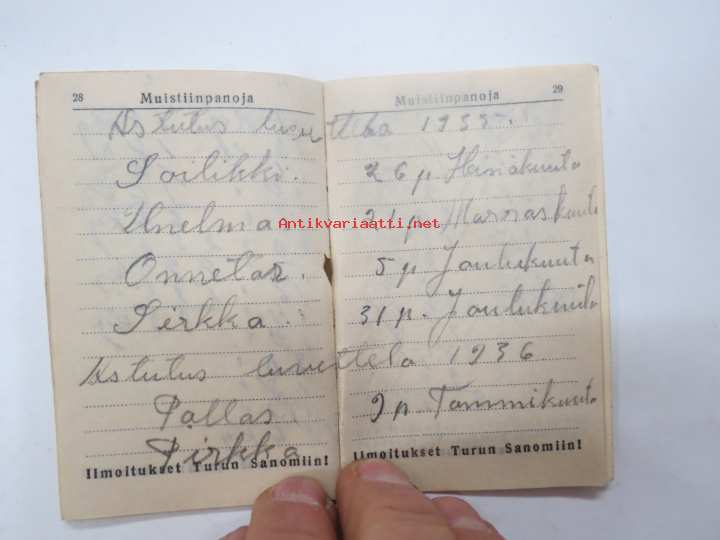 28 Muistiinpanoja
Muistiinpanoja 29
Astutus luuettela 1935.
Soilikki. 26 p. Heinäkuuta
Unelma 21 p. Marraskuuta
Onnetar. 5 p Joulukuuta
Sirkka. 31 p. Joulukuuta
Astutus luuettela 1936
Pallas. 9 p Tammikuuta
Pirkka
Ilmoitukset Turun Sanomiin!
Ilmoitukset Turun Sanomiin!
Antikvariaatti.net